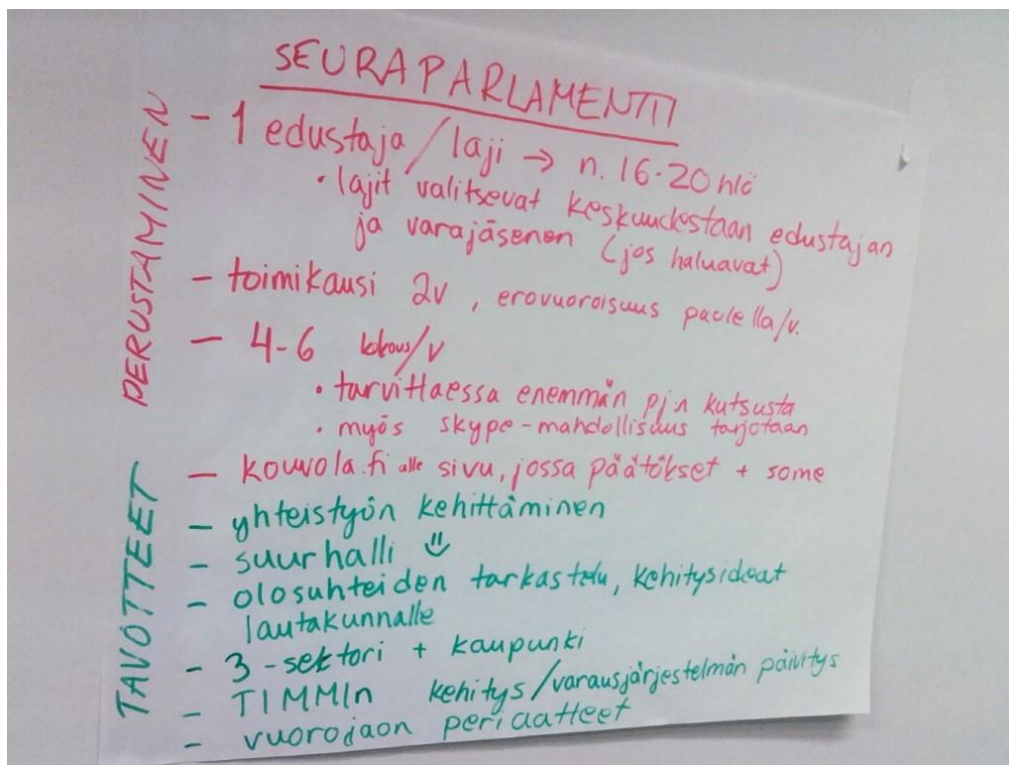 SEURAPARLAMENTTI
PERUSTAMINEN
- 1 edustaja / laji → n. 16-20 hlö
• lajit valitsevat keskuudestaan edustajan
ja varajäsenen (jos haluavat)
- toimikausi 2v, erovuoroisuus puolella/v.
- 4-6 kokous/v
• tarvittaessa enemmän pj:n kutsusta
• myös skype-mahdollisuus tarjotaan
- kouvola.fi alle sivu, jossa päätökset + some
TAVOTTEET
- yhteistyön kehittäminen
- suurhalli
- olosuhteiden tarkastelu, kehitysideat
lautakunnalle
- 3-sektori + kaupunki
- TIMMIn kehitys/varausjärjestelmän päivitys
- vuorojaon periaatteet